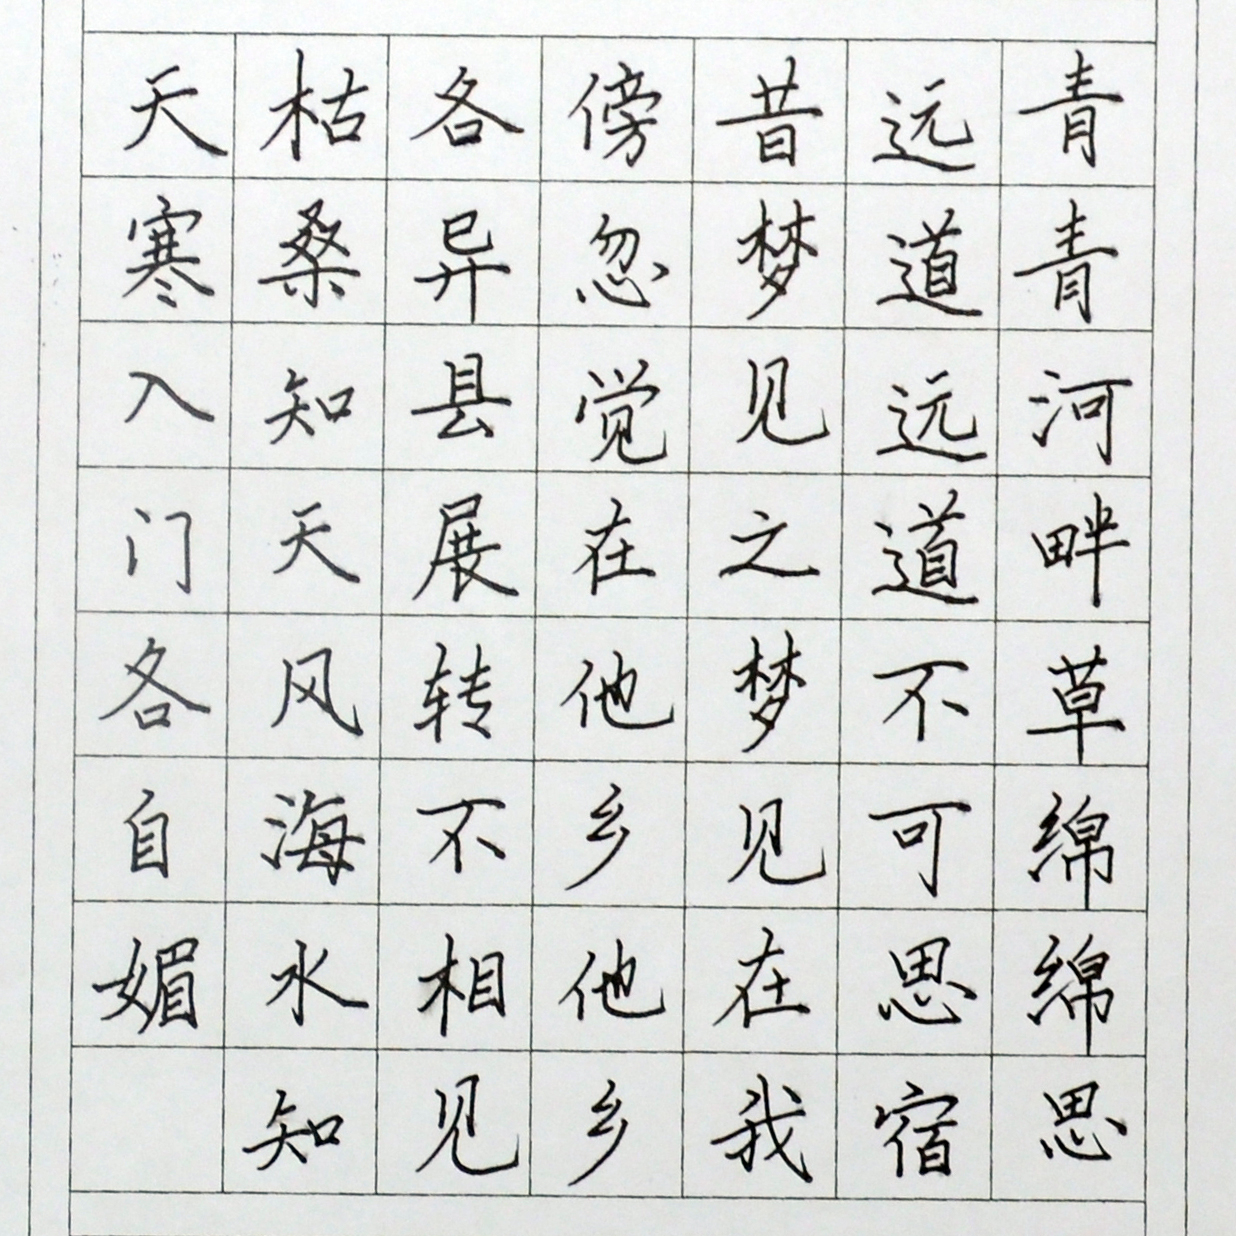 青青河畔草绵绵思
远道远道不可思宿
昔梦见之梦见在我
傍忽觉在他乡他乡
各异县展转不相见
枯桑知天风海水知
天寒入门各自媚